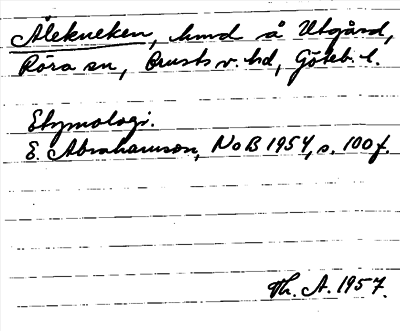 Ålekneken, hmd å Utgård,
Röra sn, Orusts v. hd, Göteb. l.
Etymologi.
E. Abrahamson, NoB 1954, s. 100 f.
Th. A. 1957.